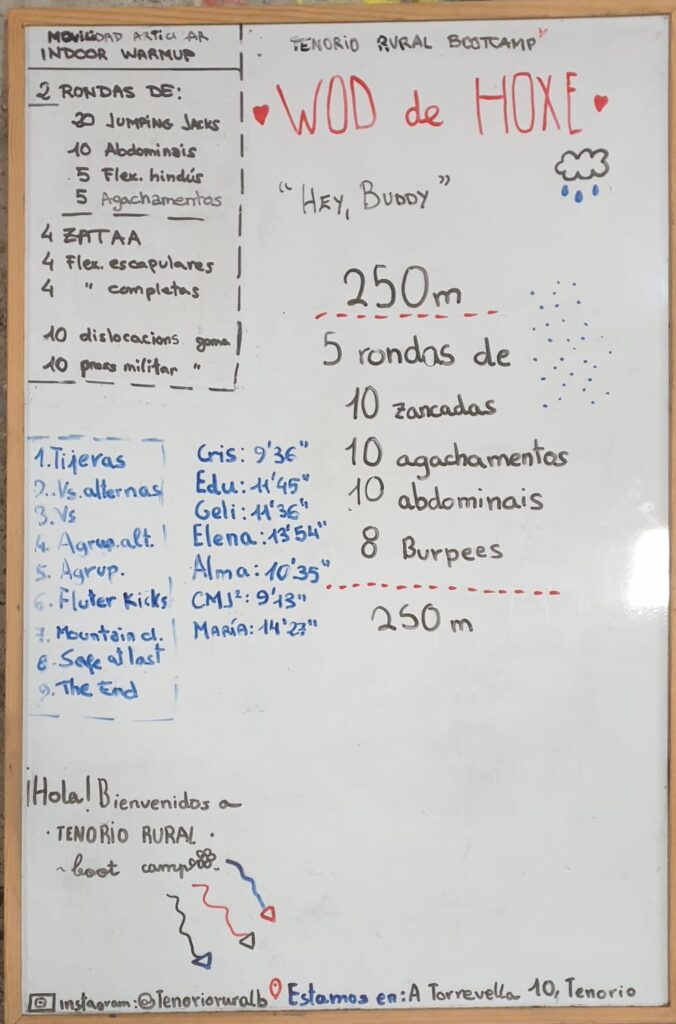 MOVILIDAD ARTICULAR
INDOOR WARMUP
2 RONDAS DE:
20 JUMPING JACKS
10 Abdominais
5 Flex. hindús
5 Agachamentos
4 ZATAA
4 Flex. escapulares
4 " completas
10 dislocacions goma
10 press militar "
TENORIO RURAL BOOTCAMP
WOD de HOXE
"HEY, BUDDY"
250m
5 rondas de
10 zancadas
10 agachamentos
10 abdominais
8 Burpees
250 m
1. Tijeras
2. Vs. alternas
3. Vs
4. Agrup. alt.
5. Agrup.
6. Fluter Kicks
7. Mountain cl.
8. Safe at last
9. The End
Cris: 9'36"
Edu: 11'45"
Geli: 11'36"
Elena: 13'54"
Alma: 10'35"
CMJ²: 9'13"
MARÍA: 14'27"
¡Hola! Bienvenidos a
· TENORIO RURAL ·
~ boot camp
instagram: @Tenorioruralb
Estamos en: A Torrevella 10, Tenorio